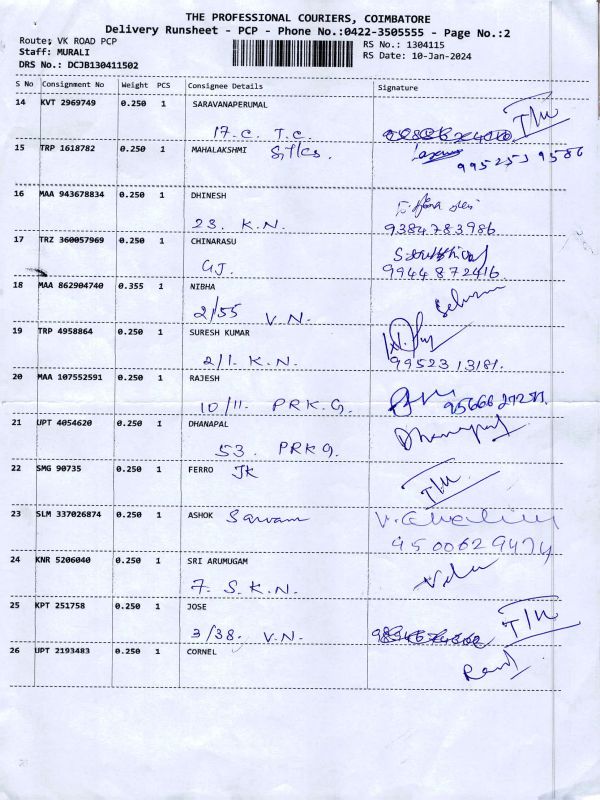 THE PROFESSIONAL COURIERS, COIMBATORE
Delivery Runsheet - PCP - Phone No.:0422-3505555 - Page No.:2
Route: VK ROAD PCP
Staff: MURALI
DRS No.: DCJB130411502
RS No.: 1304115
RS Date: 10-Jan-2024
S No Consignment No Weight PCS Consignee Details Signature
14 KVT 2969749 0.250 1 SARAVANAPERUMAL
17. C. T.C. T/N
15 TRP 1618782 0.250 1 MAHALAKSHMI
995253 9586
16 MAA 943678834 0.250 1 DHINESH
23. K.N. 9384783986
17 TRZ 360057969 0.250 1 CHINARASU
GJ. 9944872416.
18 MAA 862904740 0.355 1 NIBHA
2/55 V.N.
19 TRP 4958864 0.250 1 SURESH KUMAR
2/1. K.N. 9952313181.
20 MAA 107552591 0.250 1 RAJESH
10/11. PRK.G.
21 UPT 4054620 0.250 1 DHANAPAL Dhanapal
53. PRKG.
22 SMG 90735 0.250 1 FERRO JK T/N
23 SLM 337026874 0.250 1 ASHOK Sarvam
9500629474
24 KNR 5206040 0.250 1 SRI ARUMUGAM
7. S.K.N.
25 KPT 251758 0.250 1 JOSE
3/38. V.N. T/N
26 UPT 2193483 0.250 1 CORNEL